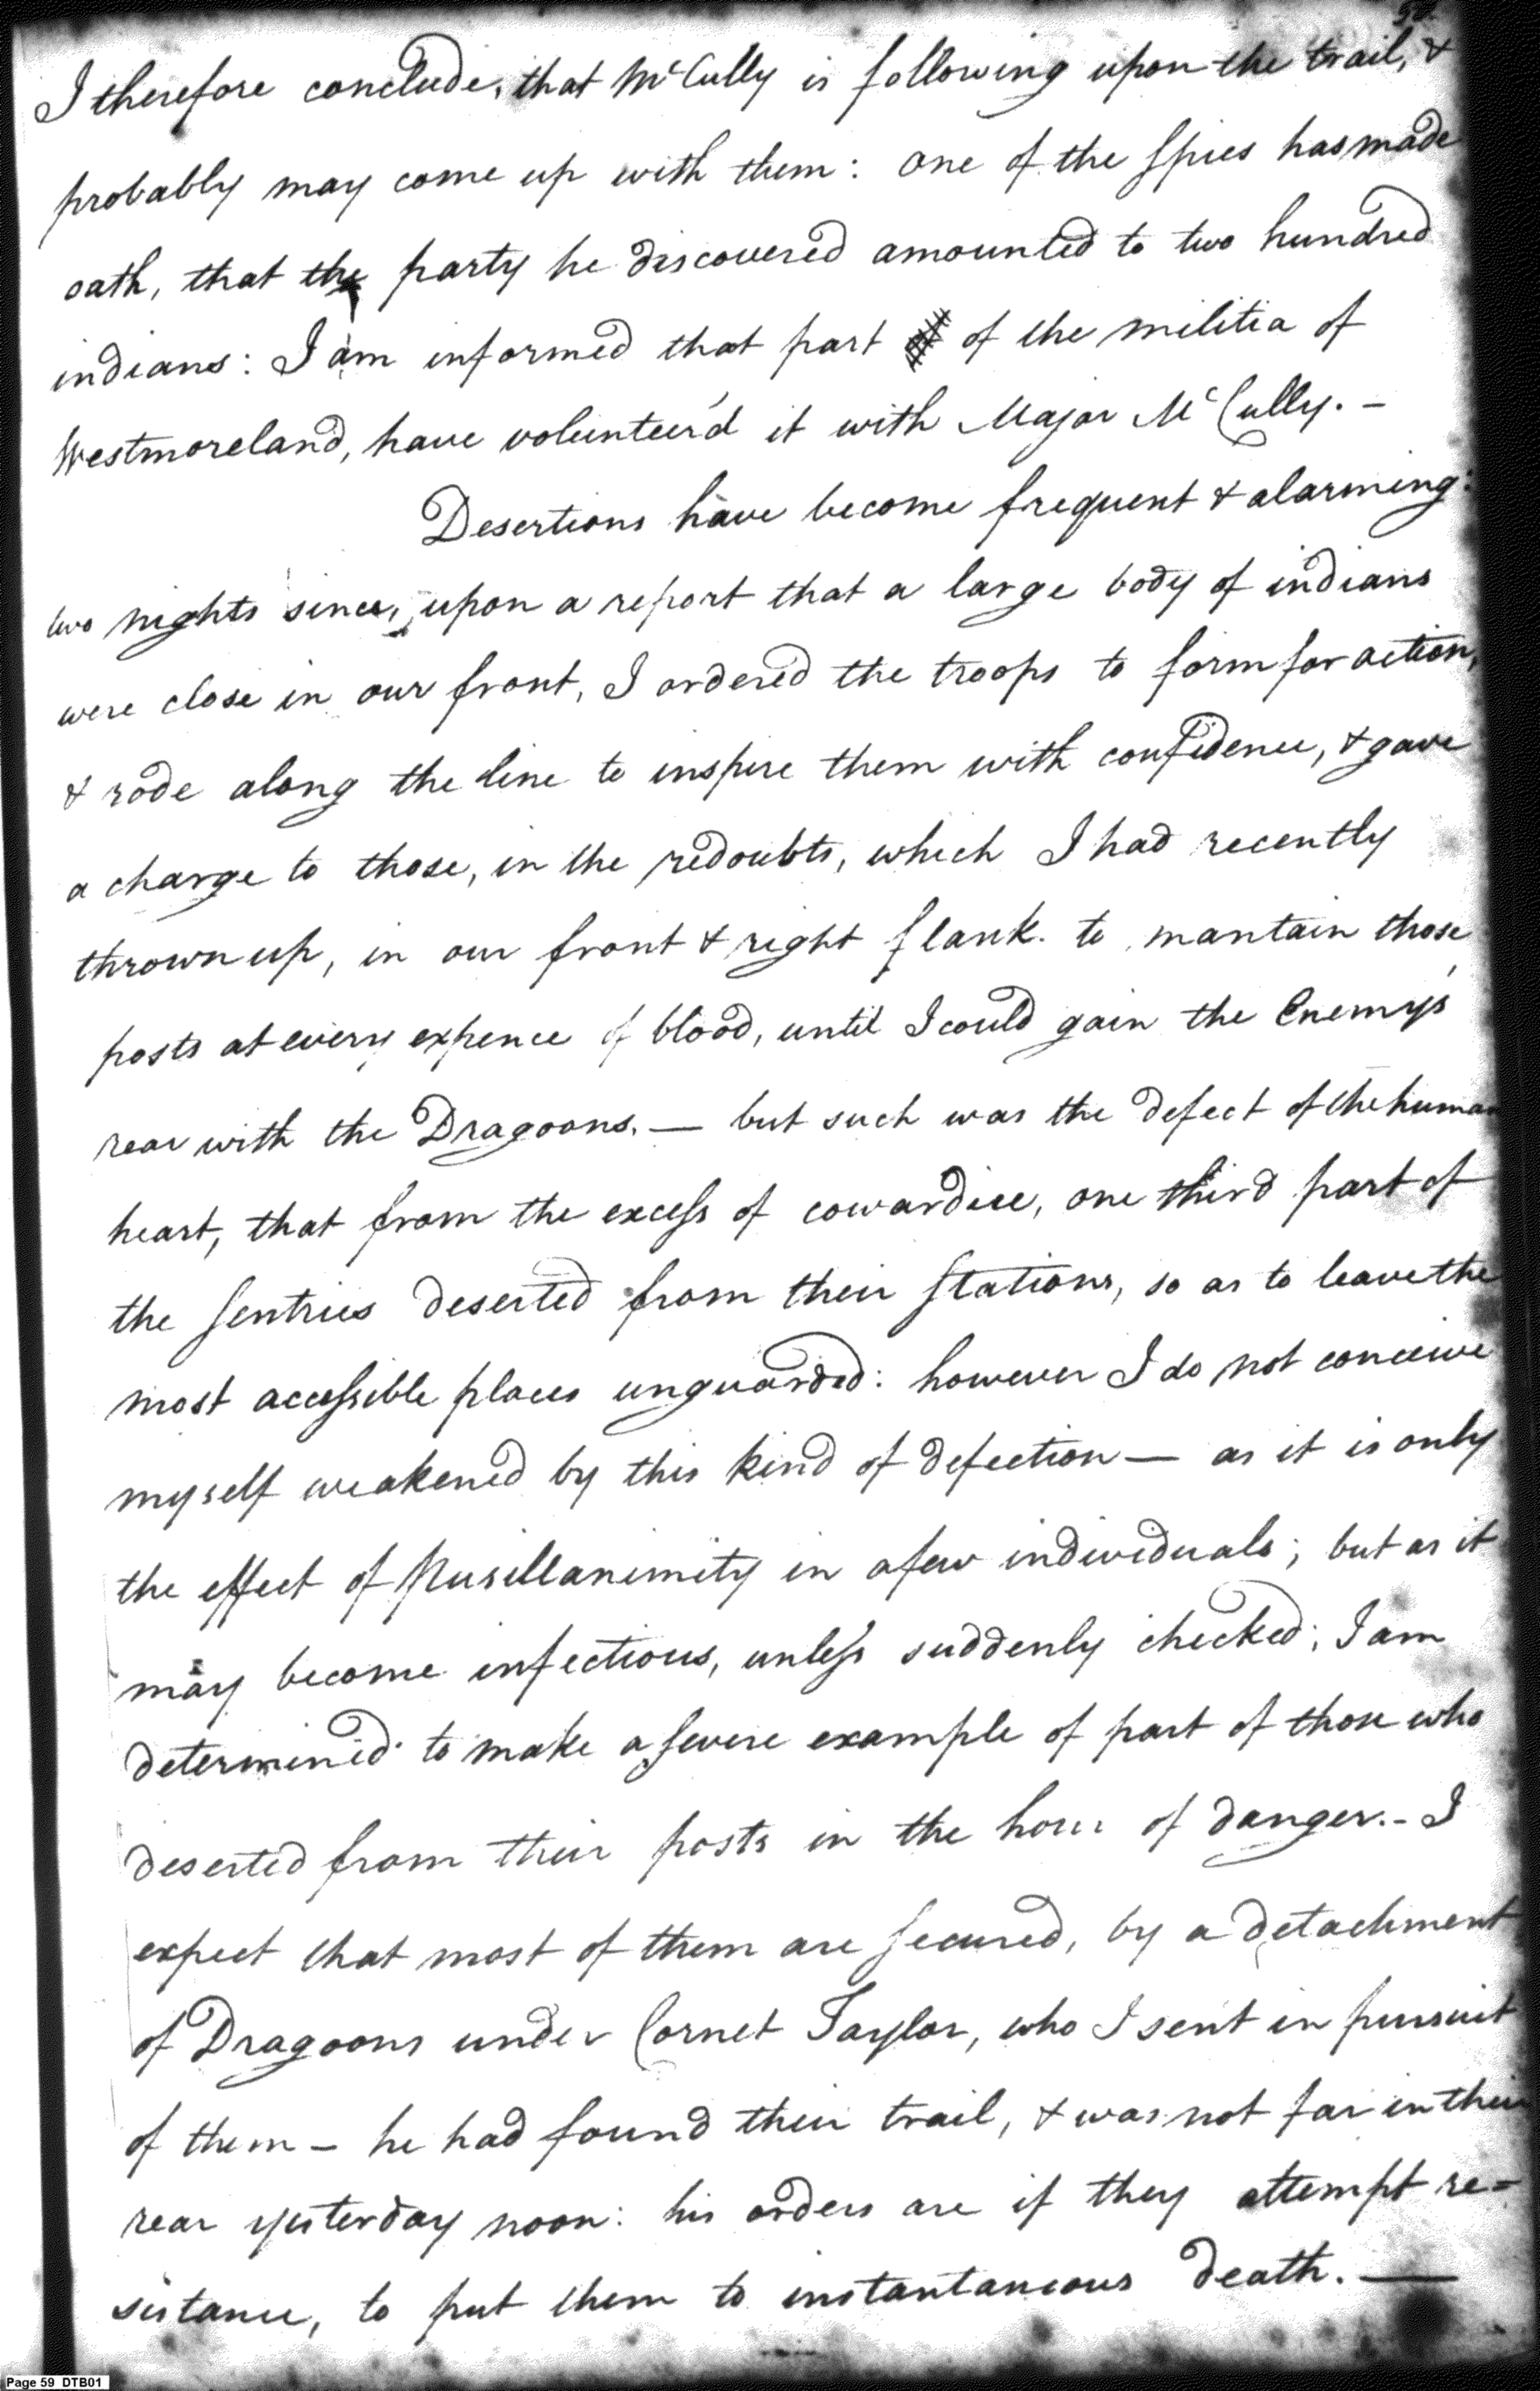 I therefore conclude, that McCully is following upon the trail, &
probably may come up with them: one of the Spies has made
oath, that the party he discovered amounted to two hundred
indians: I am informed that part of the militia of
Westmoreland, have volunteer'd it with Major McCully. –
Desertions have become frequent & alarming:
two nights since, upon a report that a large body of indians
were close in our front, I ordered the troops to form for action,
& rode along the line to inspire them with confidence, & gave
a charge to those, in the redoubts, which I had recently
thrown up, in our front & right flank. to mantain those
posts at every expence of blood, until I could gain the Enemys
rear with the Dragoons. — but such was the defect of the human
heart, that from the excess of cowardice, one third part of
the Sentries deserted from their Stations, so as to leave the
most accessible places unguarded: however I do not conceive
myself weakened by this kind of defection — as it is only
the effect of Pusillanimity in a few individuals; but as it
may become infectious, unless suddenly checked; I am
determined to make a Severe example of part of those who
deserted from their posts in the hour of danger. – I
expect that most of them are Secured, by a detachment
of Dragoons under Cornet Taylor, who I sent in pursuit
of them – he had found their trail, & was not far in their
rear yesterday noon: his orders are if they attempt re-
sistance, to put them to instantaneous death. —
Page 59 DTB01